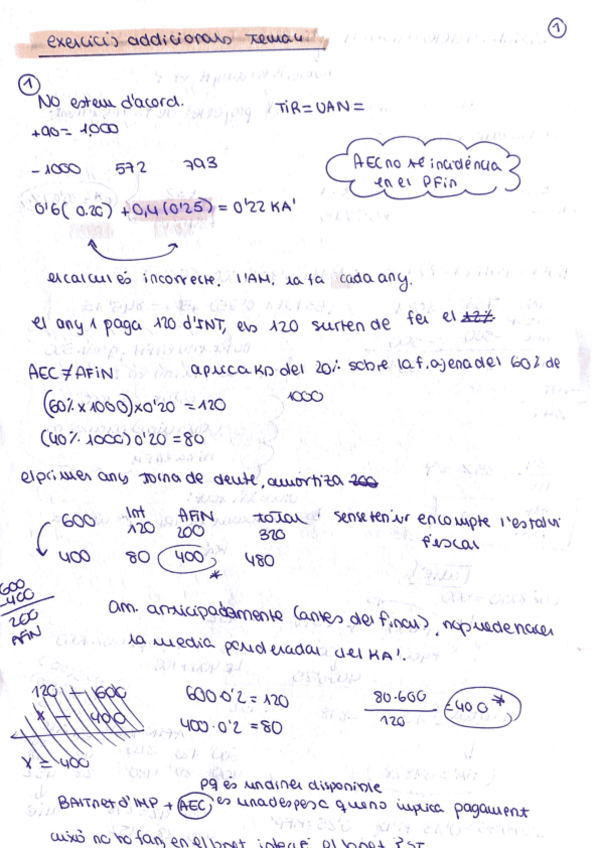 1
exercicis addicionals Tema 4
1
No estem d'acord. TiR = VAN =
+90 = 1,000
-1000 572 793
AEC no té incidència en el PFin
0'6(0.20) + 0,4(0'25) = 0'22 KA'
el calcul és incorrecte. l'AM. la fa cada any.
el any 1 paga 120 d'INT, els 120 surten de fer el 12%
AEC ≠ AFin aplica KD del 20% sobre la f. ajena del 60% de 1000
(60% x 1000) x 0'20 = 120
(40% 1000) 0'20 = 80
el primer any torna de deute, amortiza 200
Int AFIN TOTAL sense tenir en compte l'estalvi fiscal
600 120 200 320
400 80 400 480
*
600
-400
200
AFIN
am. anticipadamente (antes del final), no puede hacer
la media ponderada del KA'.
120 - 600 600·0'2 = 120 80·600 / 120 = 400 *
x - 400 400·0'2 = 80
x = 400
pq és un diner disponible
BAIT net d'IMP + AEC, es una despesa que no implica pagament
això no ho fan, en el bnet